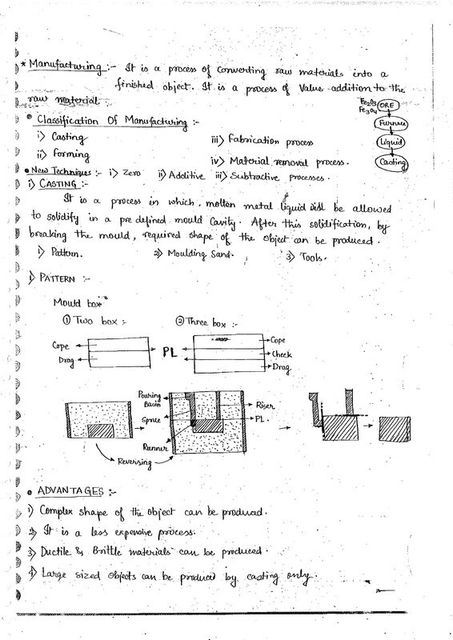 * Manufacturing :- It is a process of converting raw materials into a
finished object. It is a process of Value addition to the
raw material.
Fe2O3
Fe3O4
ORE
Furnace
Liquid
Casting
• Classification Of Manufacturing :-
i) Casting
iii) Fabrication process
ii) Forming
iv) Material removal process.
• New Techniques :- i) Zero ii) Additive iii) Subtractive processes.
i) CASTING :-
It is a process in which, molten metal liquid will be allowed
to solidify in a pre defined mould cavity. After this solidification, by
breaking the mould, required shape of the object can be produced.
1) Pattern. 2) Moulding Sand. 3) Tools.
1) PATTERN :-
Mould box
① Two box :- ② Three box :-
Cope
Drag
PL
Cope
Cheek
Drag
Pouring
Basin
Sprue
Runner
Riser
PL.
Reversing
• ADVANTAGES :-
1) Complex shape of the object can be produced.
2) It is a less expensive process.
3) Ductile & Brittle materials can be produced.
4) Large sized objects can be produced by casting only.